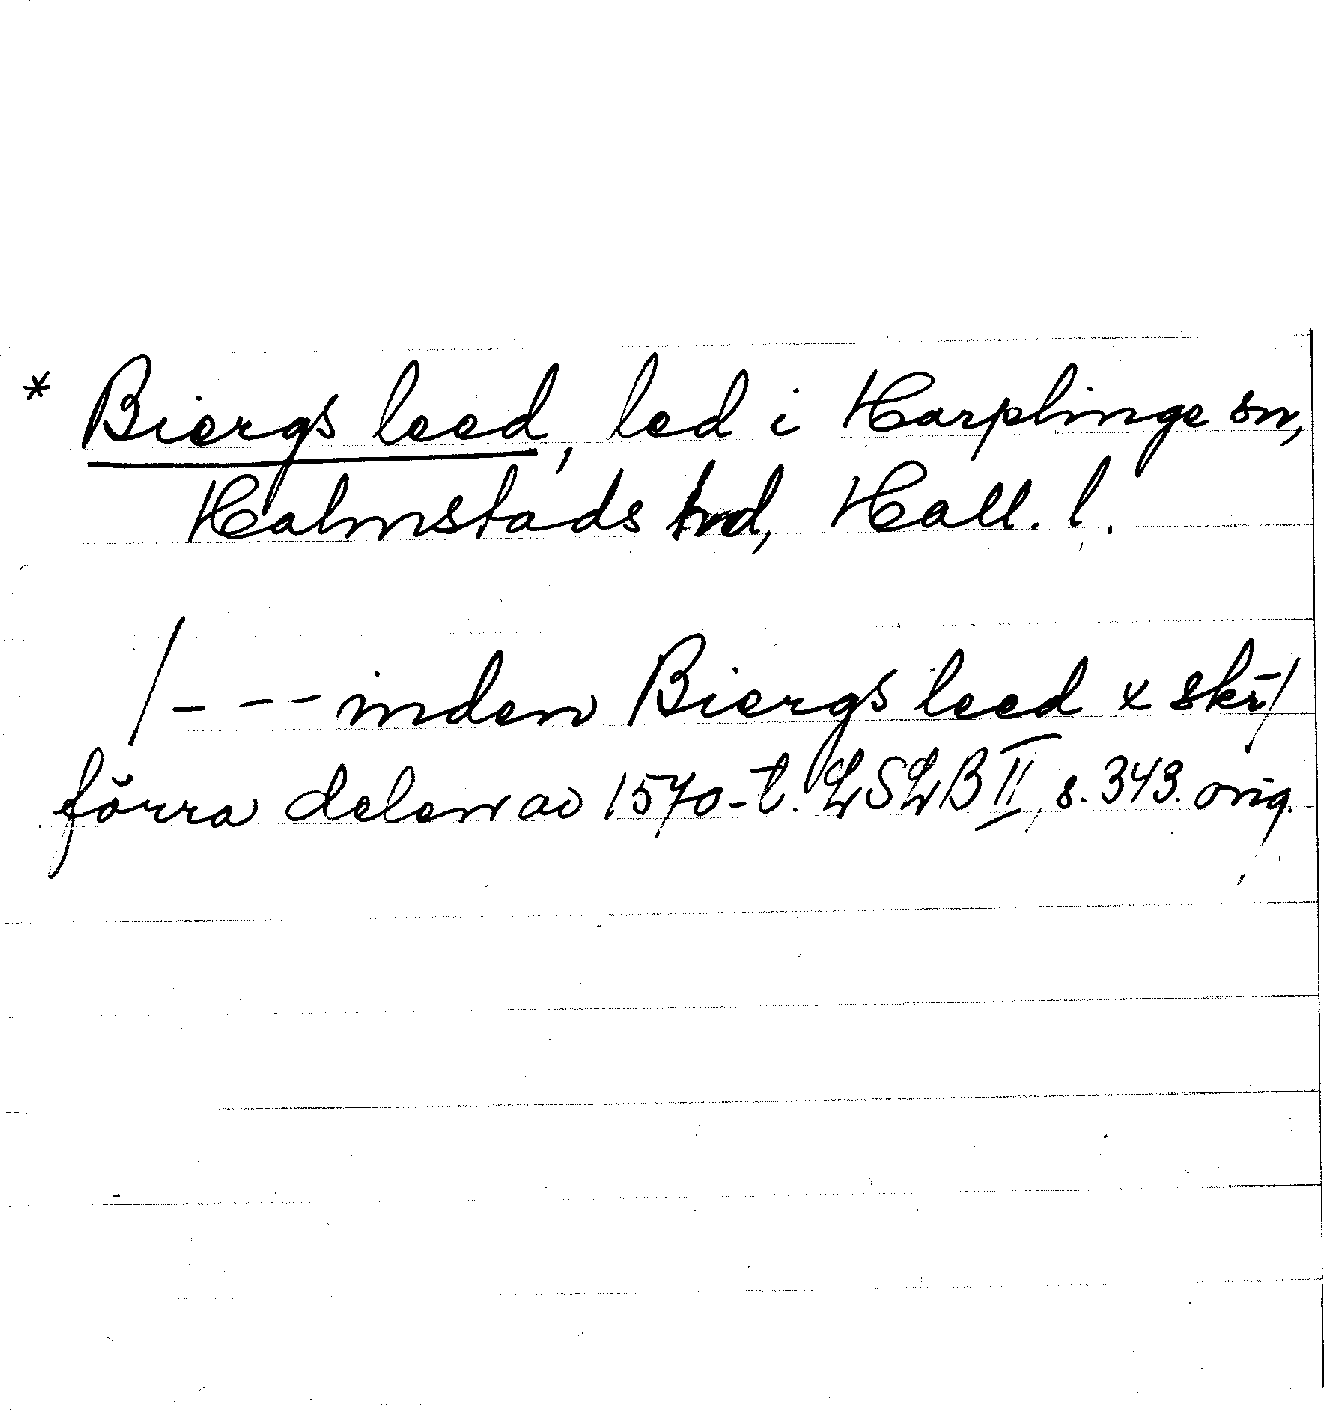 * Biergs leed, led i Harplinge sn,
Halmstads hd, Hall. l.
/--- inden Biergs leed x skı̄/
förra delen av 1570-t. LSLB II, s. 343. orig.